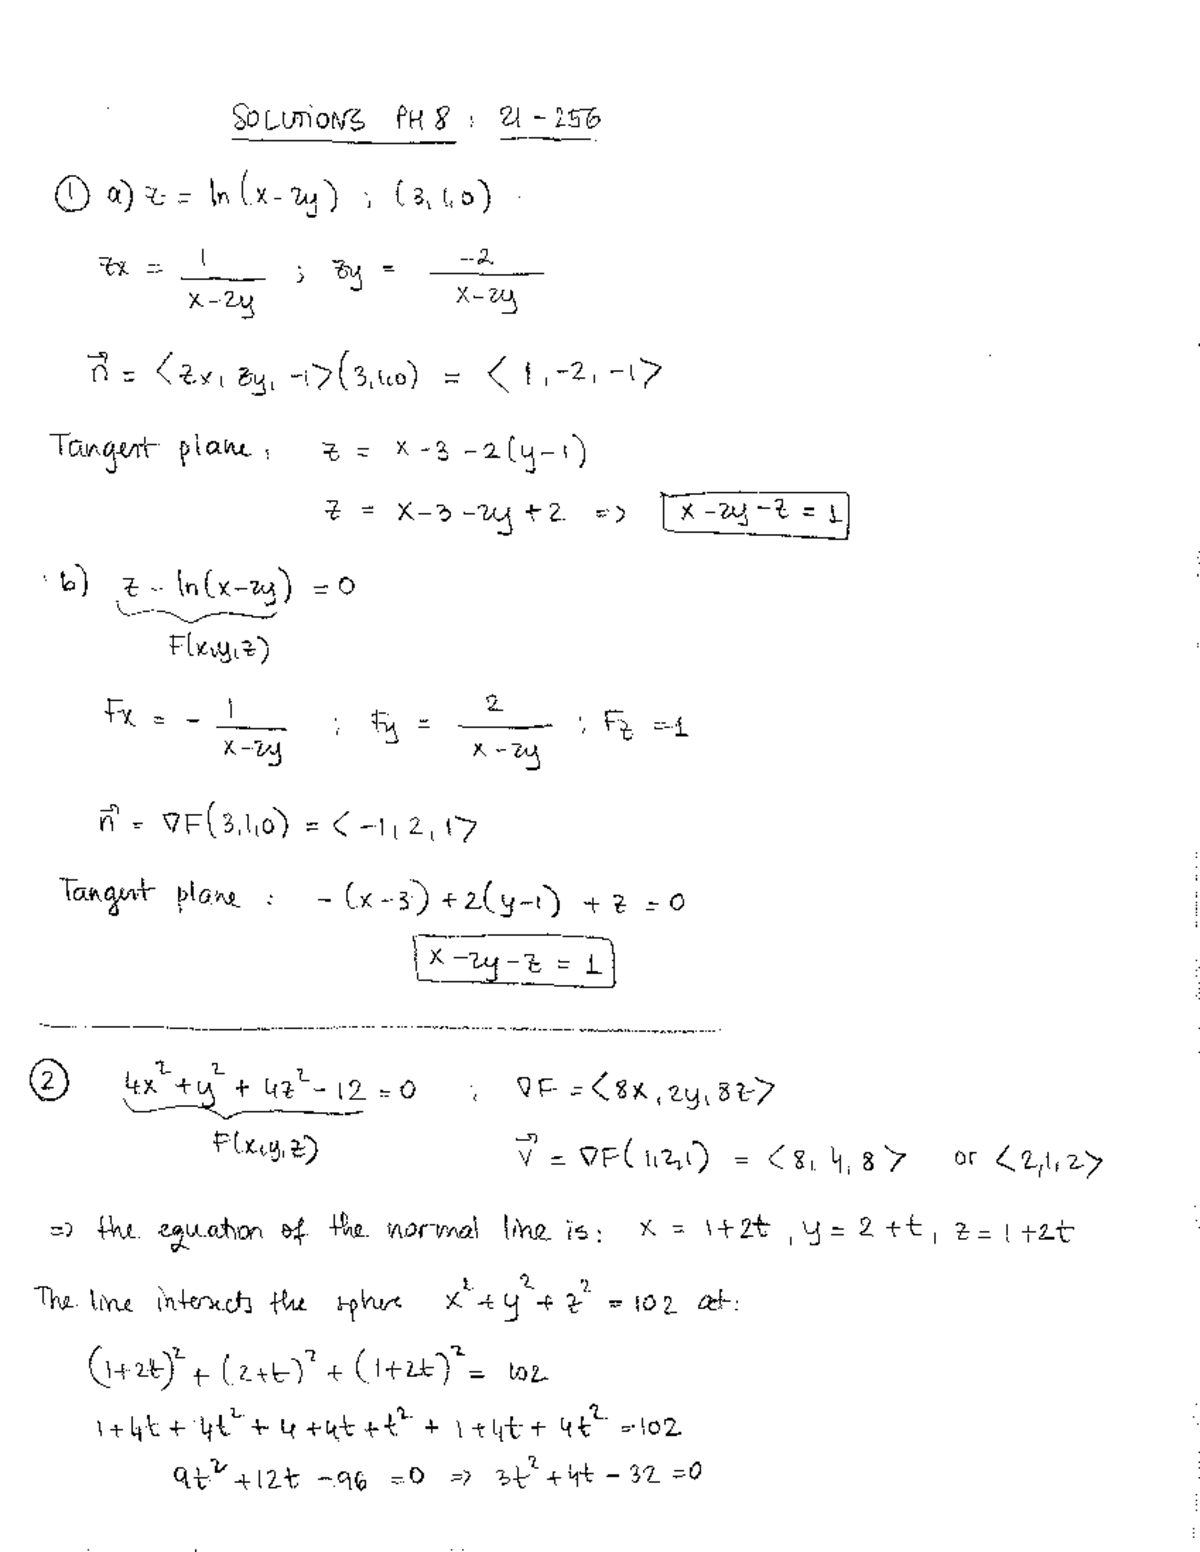 SOLUTIONS PH 8 : 21-256
① a) z = ln(x-2y) ; (3,1,0)
zx = 1/(x-2y) ; zy = -2/(x-2y)
n⃗ = <zx, zy, -1>(3,1,0) = <1,-2,-1>
Tangent plane: z = x-3-2(y-1)
z = x-3-2y+2 => x-2y-z = 1
b) z - ln(x-2y) = 0
F(x,y,z)
Fx = - 1/(x-2y) ; Fy = 2/(x-2y) ; Fz = 1
n⃗ = ∇F(3,1,0) = <-1, 2, 1>
Tangent plane : -(x-3)+2(y-1)+z = 0
x-2y-z = 1
② 4x²+y²+4z²-12 = 0 ; ∇F = <8x, 2y, 8z>
F(x,y,z) v⃗ = ∇F(1,2,1) = <8, 4, 8> or <2,1,2>
=> the equation of the normal line is: x = 1+2t, y = 2+t, z = 1+2t
The line intersects the sphere x²+y²+z² = 102 at:
(1+2t)²+(2+t)²+(1+2t)² = 102
1+4t+4t²+4+4t+t²+1+4t+4t² = 102
9t²+12t-96 = 0 => 3t²+4t-32 = 0